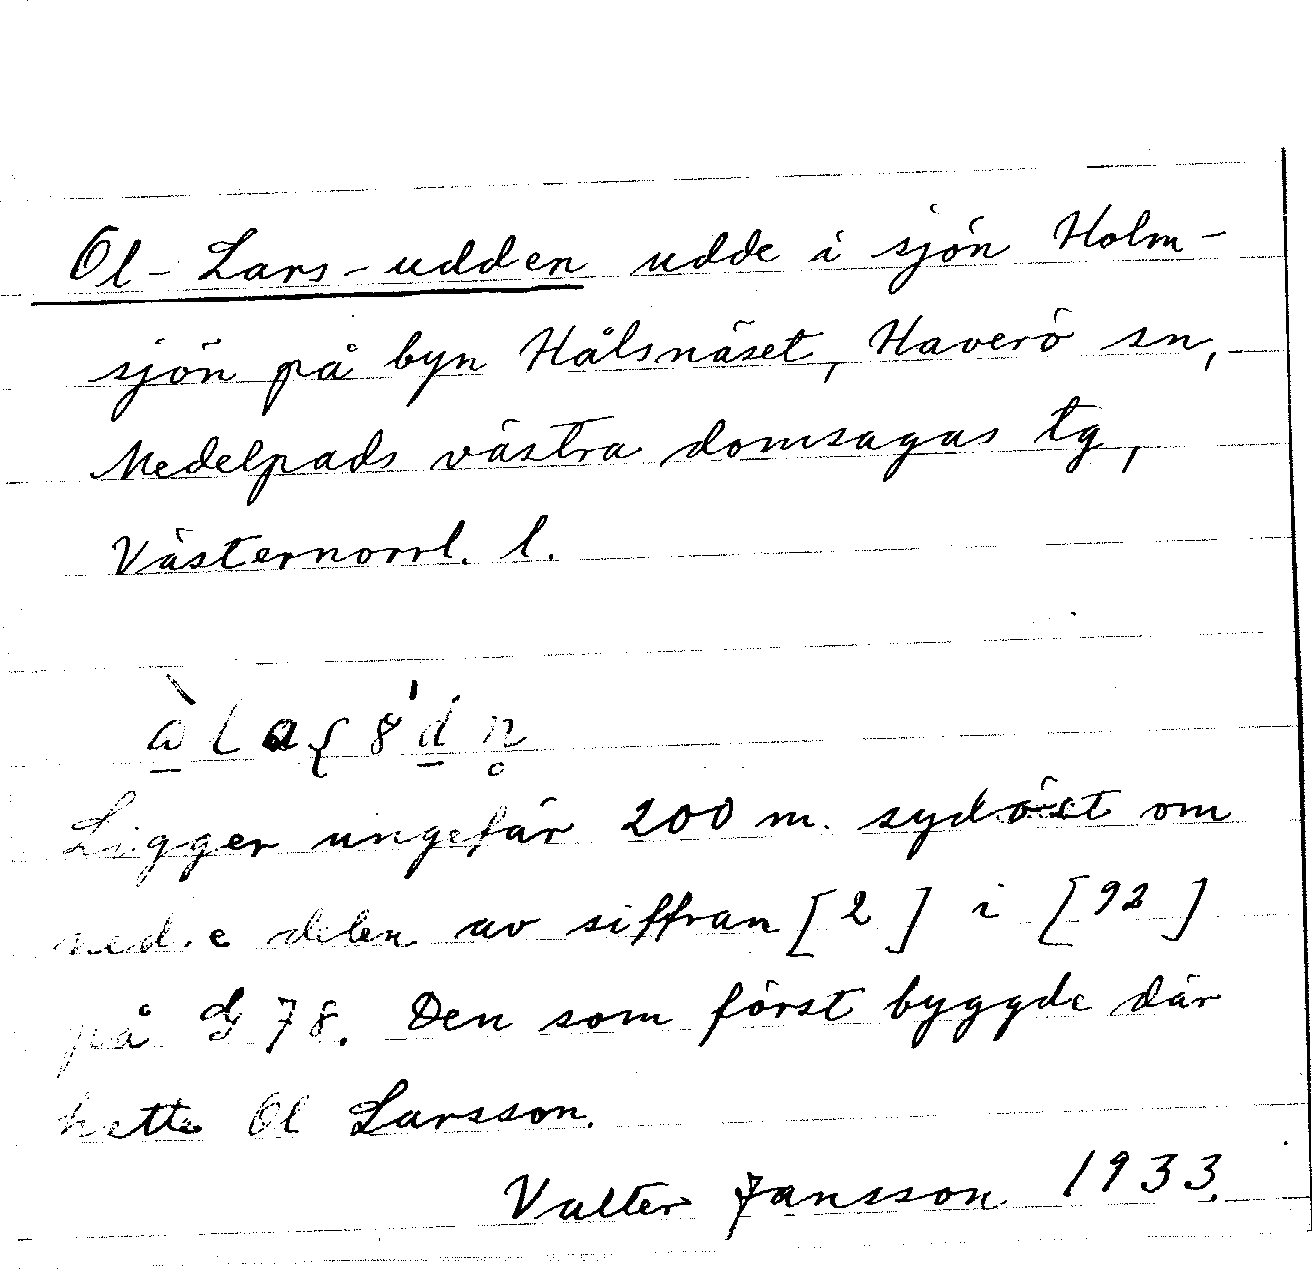 Ol-Lars-udden udde i sjön Holm-
sjön på byn Hålsnäset, Haverö sn,
Medelpads västra domsagas tg,
Västernorrl. l.
Ligger ungefär 200 m. sydöst om
nedre delen av siffran [2] i [92]
på G 78. Den som först byggde där
hette Ol Larsson.
Valter Jansson 1933.